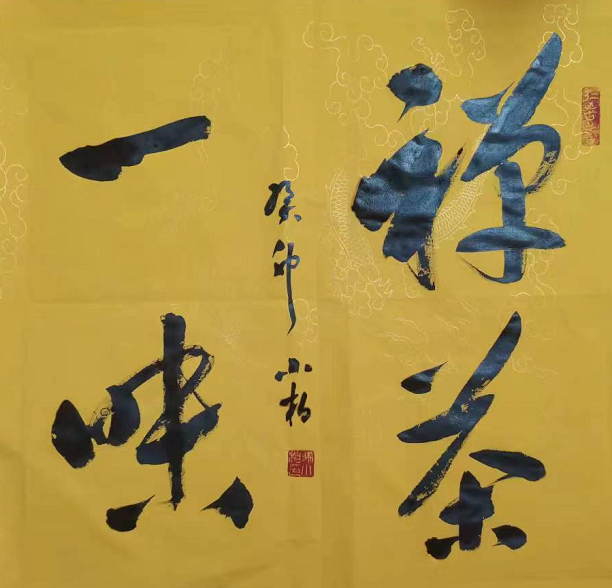 禅茶
一味
癸卯
小柏